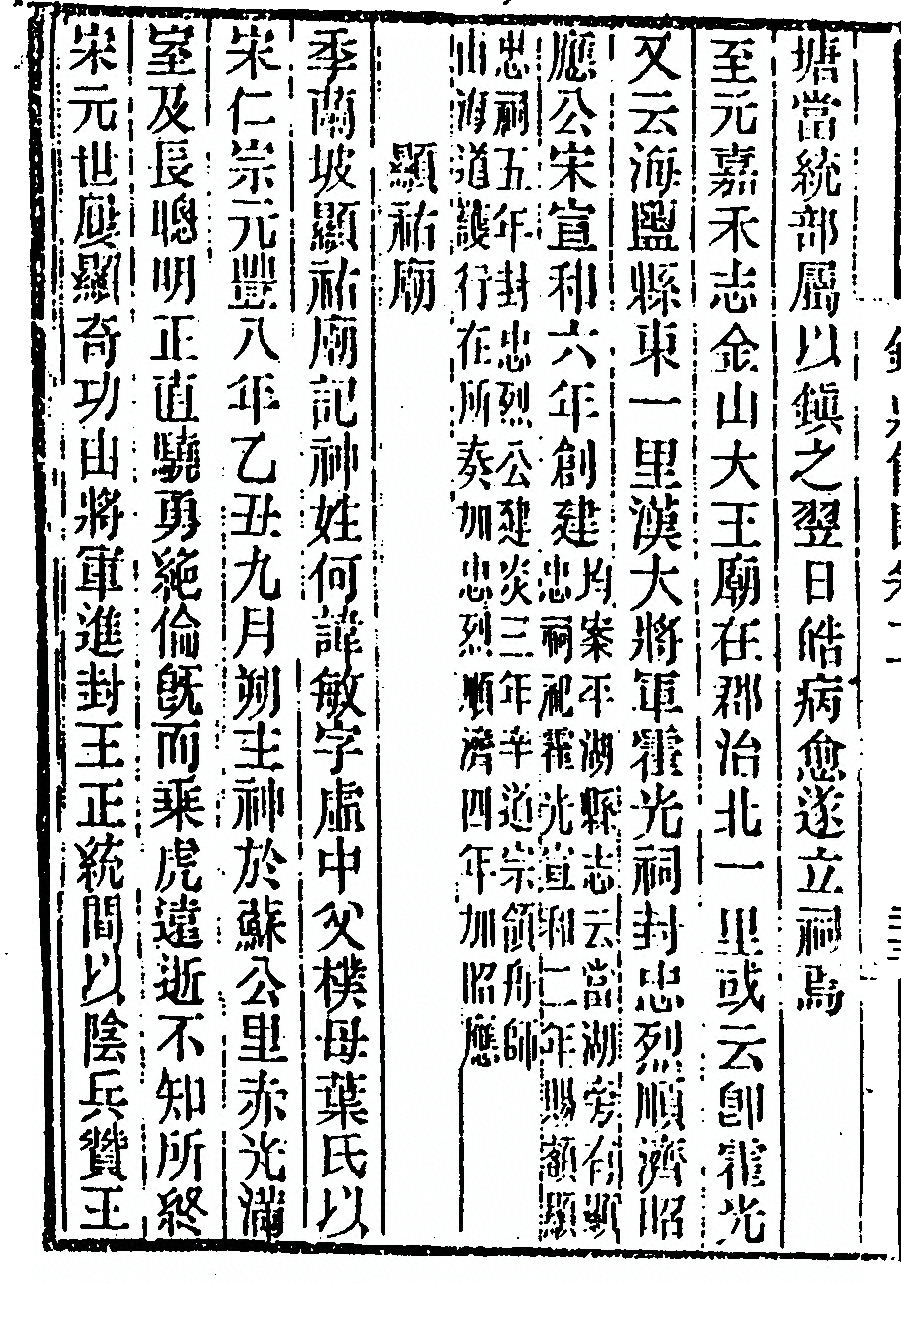 塘當統部屬以鎮之翌日皓病愈遂立祠焉
至元嘉禾志金山大王廟在郡治北一里或云卽霍光
又云海鹽縣東一里漢大將軍霍光祠封忠烈順濟昭
應公宋宣和六年創建
均案平湖縣志云當湖旁有顯
忠祠祀霍光宣和二年賜額顯
忠祠五年封忠烈公建炎三年辛道宗領舟師
由海道護行在所奏加忠烈順濟四年加昭應
顯祐廟
季蘭坡顯祐廟記神姓何諱敏字虛中父樸母葉氏以
宋仁宗元豐八年乙丑九月朔主神於蘇公里赤光滿
室及長聰明正直驍勇絶倫旣而乘虎遠逝不知所終
宋元世屢顯奇功由將軍進封王正統間以陰兵贊王